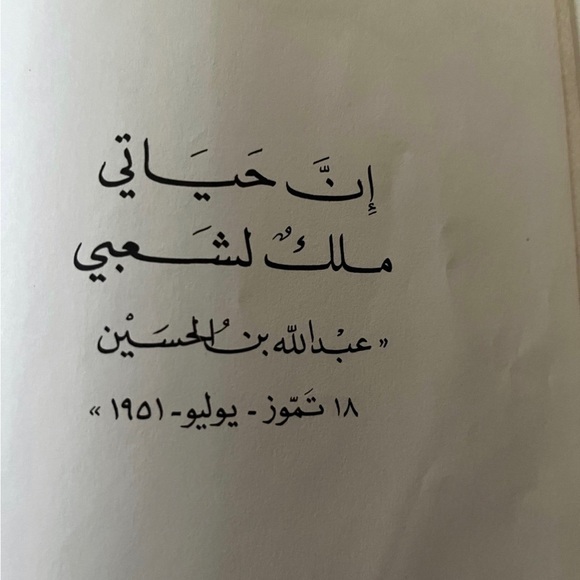 إِنَّ حَيَاتي
ملكٌ لشَعبي
« عبْدالله بنُ الحسَيْن
١٨ تَمّوز - يوليو - ١٩٥١ »